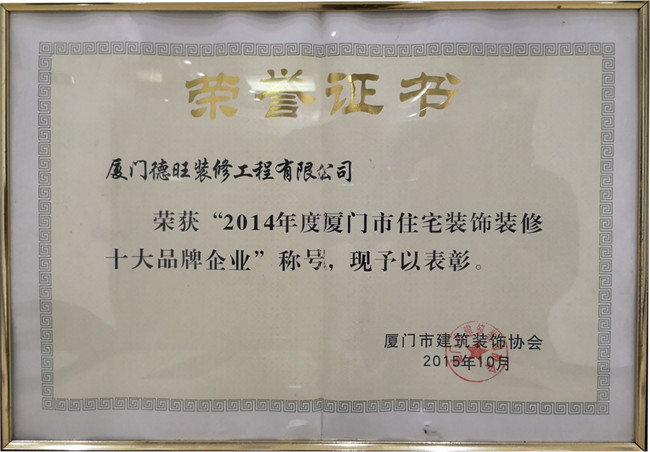 荣誉证书
厦门德旺装修工程有限公司
荣获“2014年度厦门市住宅装饰装修
十大品牌企业”称号，现予以表彰。
厦门市建筑装饰协会
2015年10月